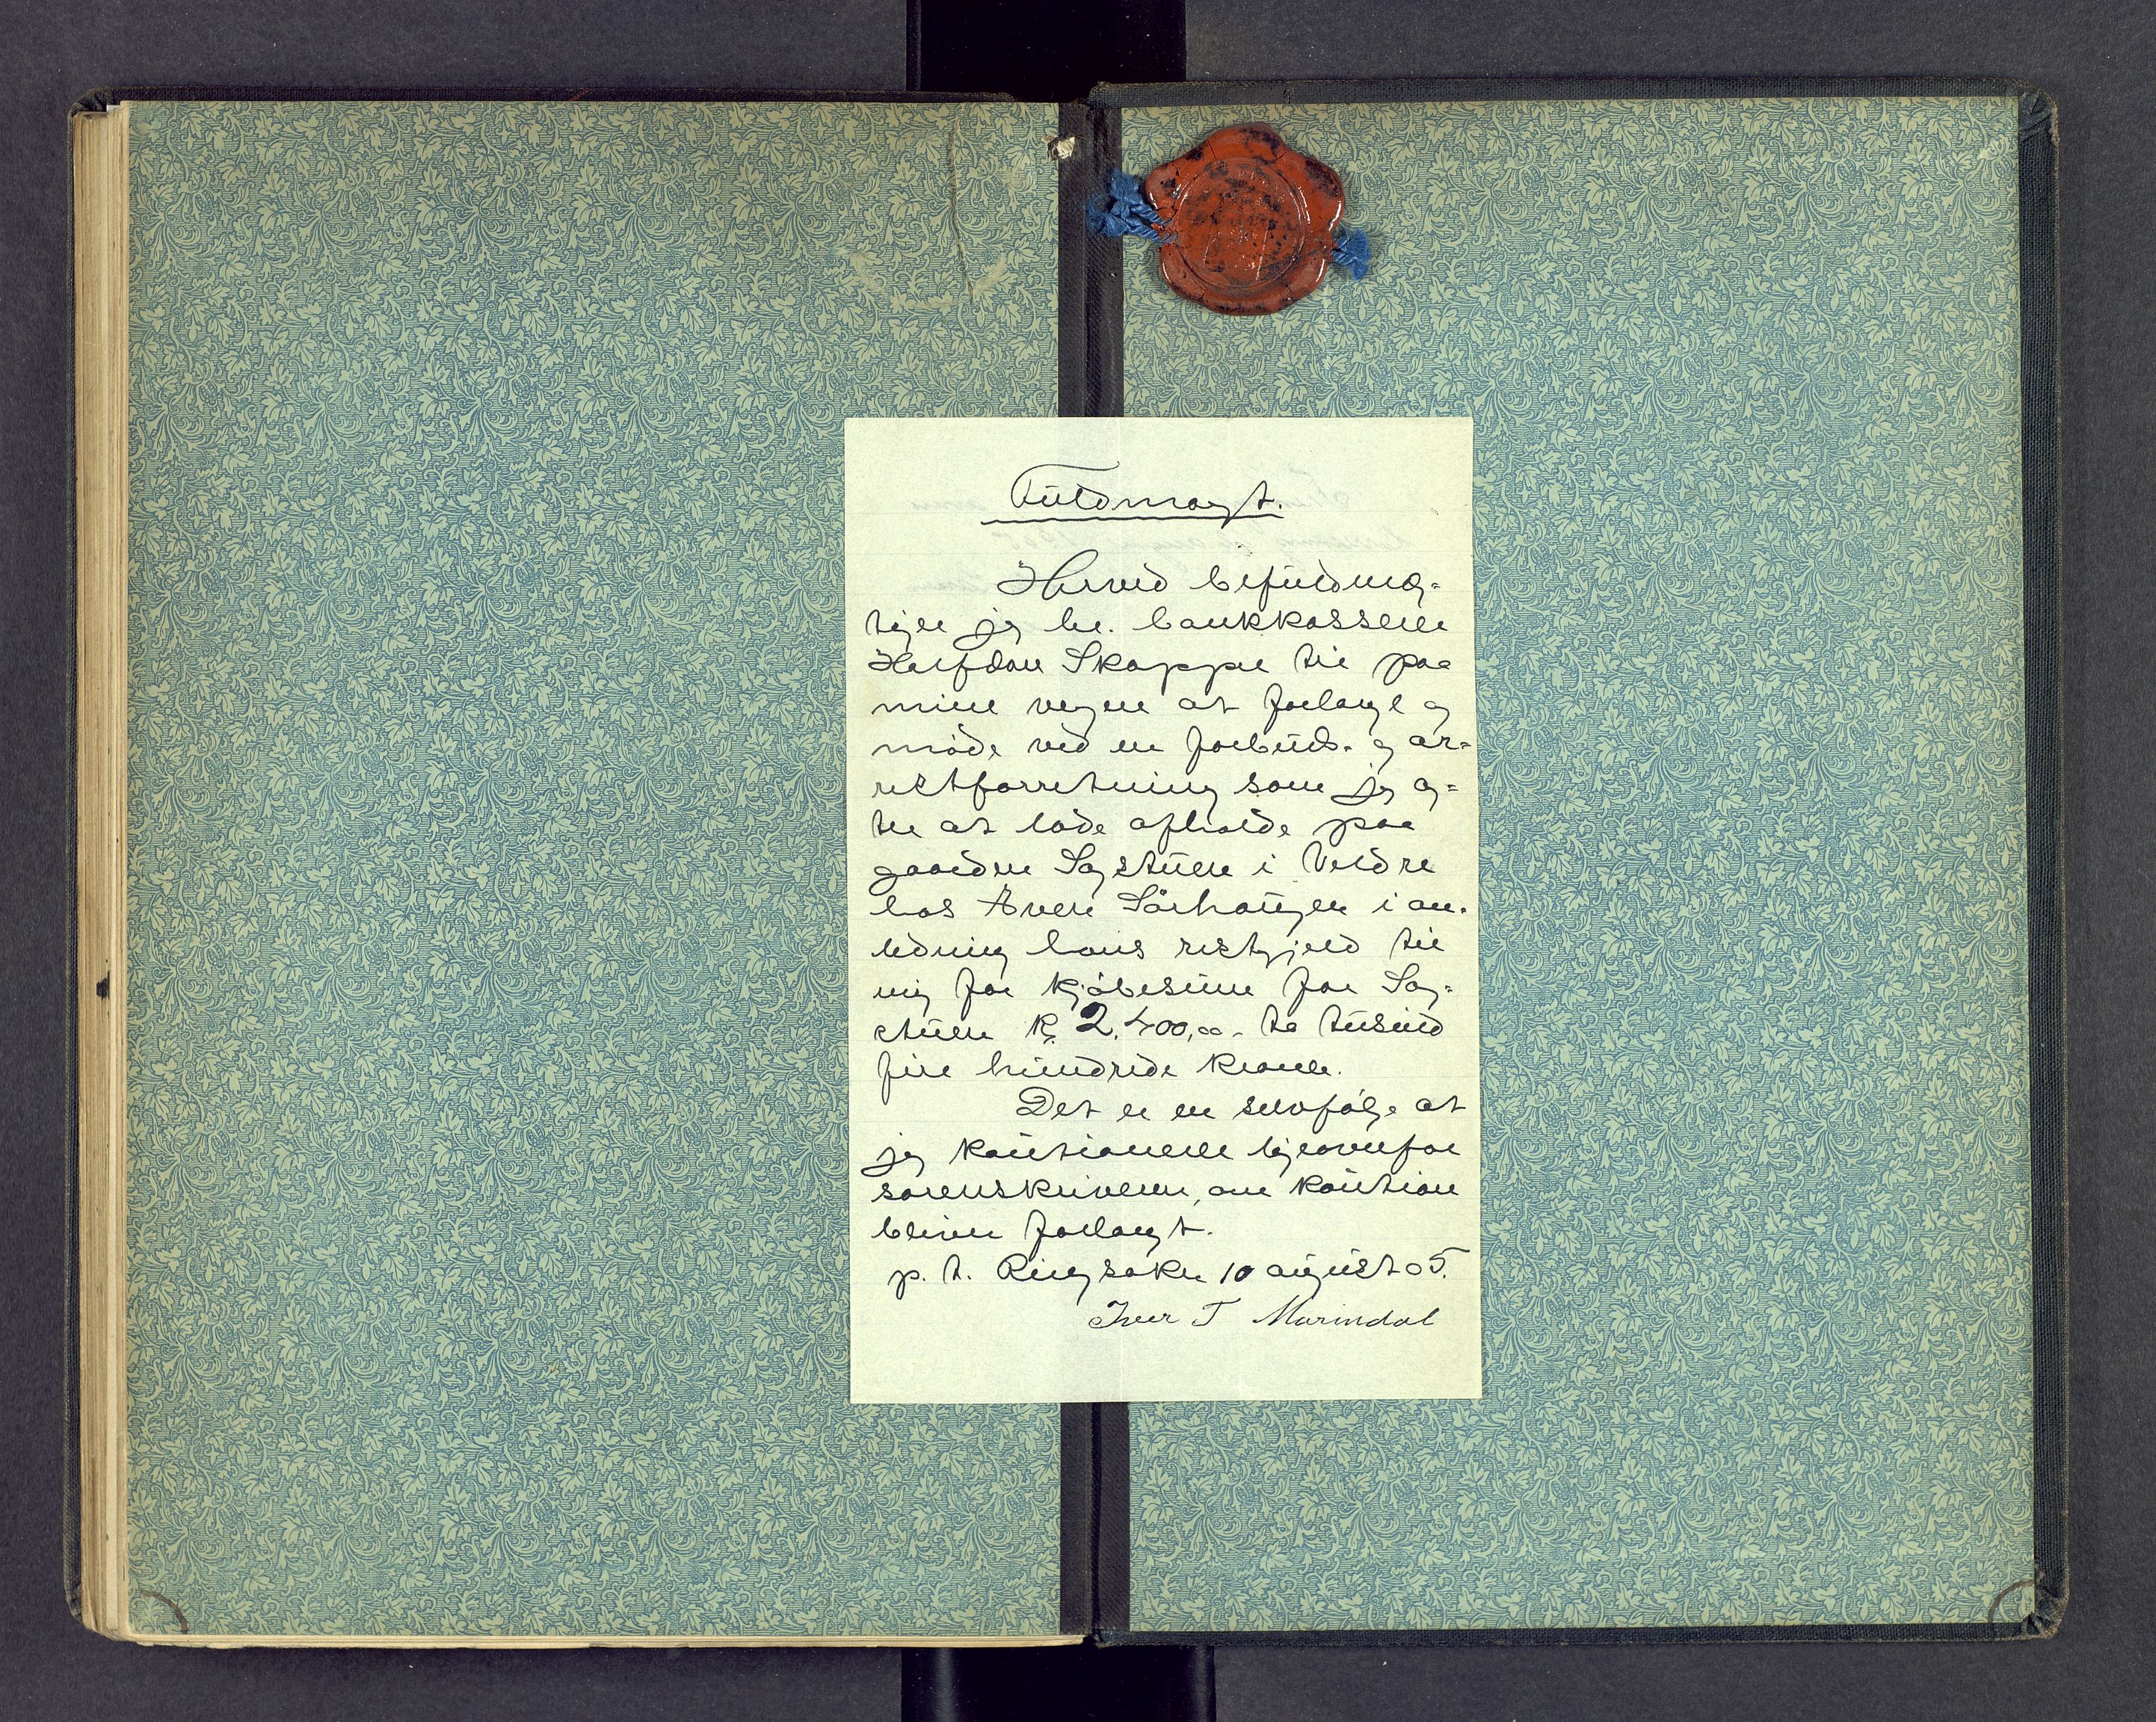 Fuldmagt.
Herved befuldmæg=
tiger jeg hr. bankkasserer
Halfdan Skappel til paa
mine vegne at forlange og
møde ved en forbuds- og ar=
restforretning som jeg ag=
ter at lade afholde paa
gaarden Sagstuen i Veldre
hos Even Sörhaugen i an-
ledning hans restgjeld til
mig for kjöbesum for Sag=
stuen kr 2.400,00 - to tusind
fire hundrede kroner.
Det er en selvfølge at
jeg kautionerer ligeoverfor
sorenskriveren, om kaution
bliver forlangt.
p. t. Ringsaker 10 august 05.
Iver T Marindal